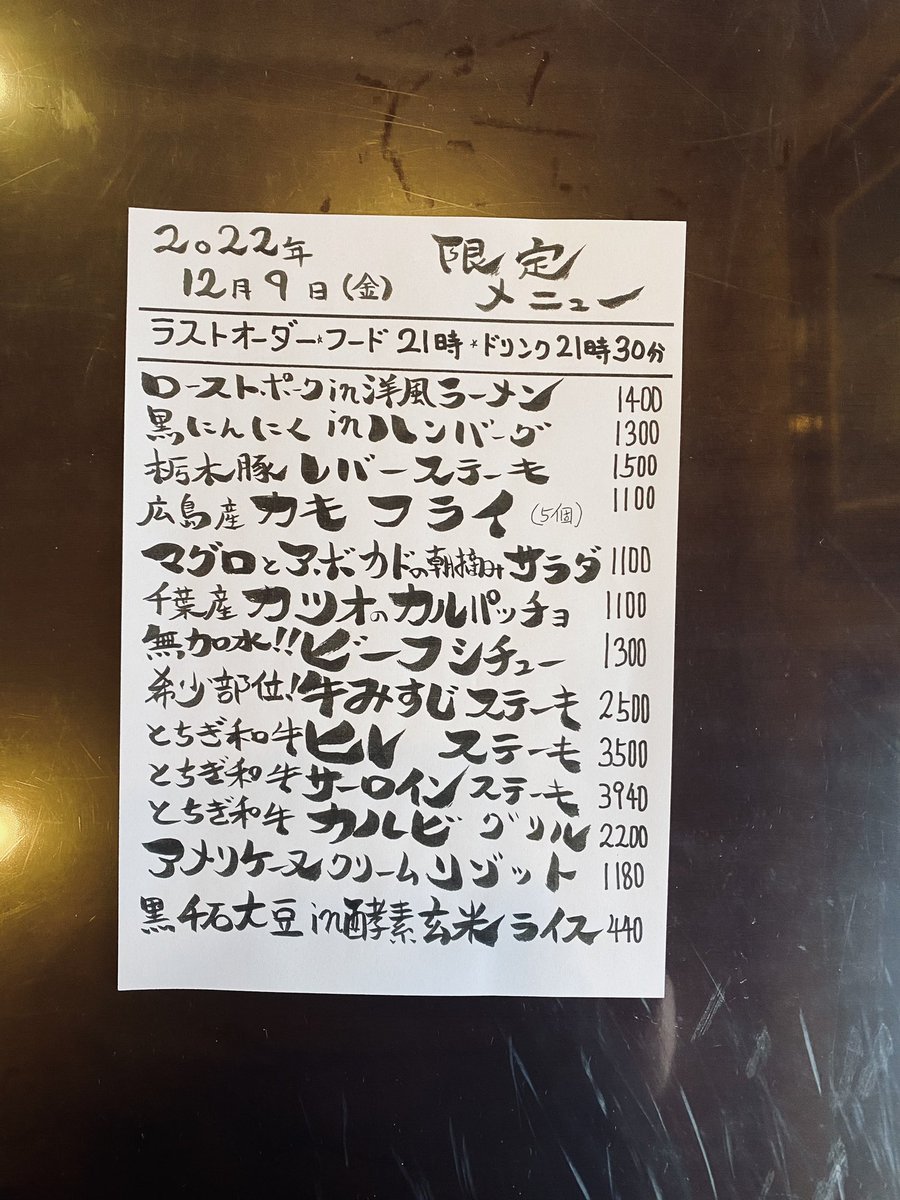 2022年
12月9日(金)
限定
メニュー
ラストオーダー*フード21時*ドリンク21時30分
ローストポークin洋風ラーメン 1400
黒にんにくinハンバーグ 1300
栃木豚レバーステーキ 1500
広島産カキフライ(5個) 1100
マグロとアボカドの朝摘みサラダ 1100
千葉産カツオのカルパッチョ 1100
無加水!!ビーフシチュー 1300
希少部位!牛みすじステーキ 2500
とちぎ和牛ヒレステーキ 3500
とちぎ和牛サーロインステーキ 3940
とちぎ和牛カルビグリル 2200
アメリケーヌクリームリゾット 1180
黒千石大豆in酵素玄米ライス 440